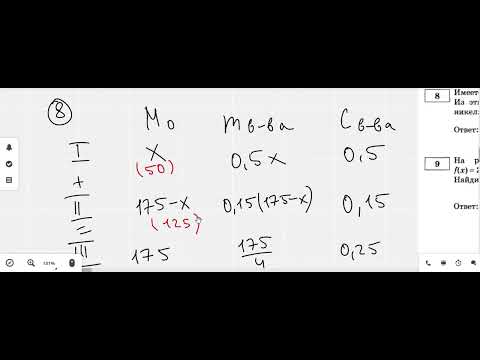 8
M₀ m в-ва C в-ва
I x 0,5x 0,5
(50)
+
II 175-x 0,15(175-x) 0,15
(125)
=
III 175 175/4 0,25
8 Имеет
Из эти
никел
Ответ:
9 На р
f(x)=
Найди
Ответ: